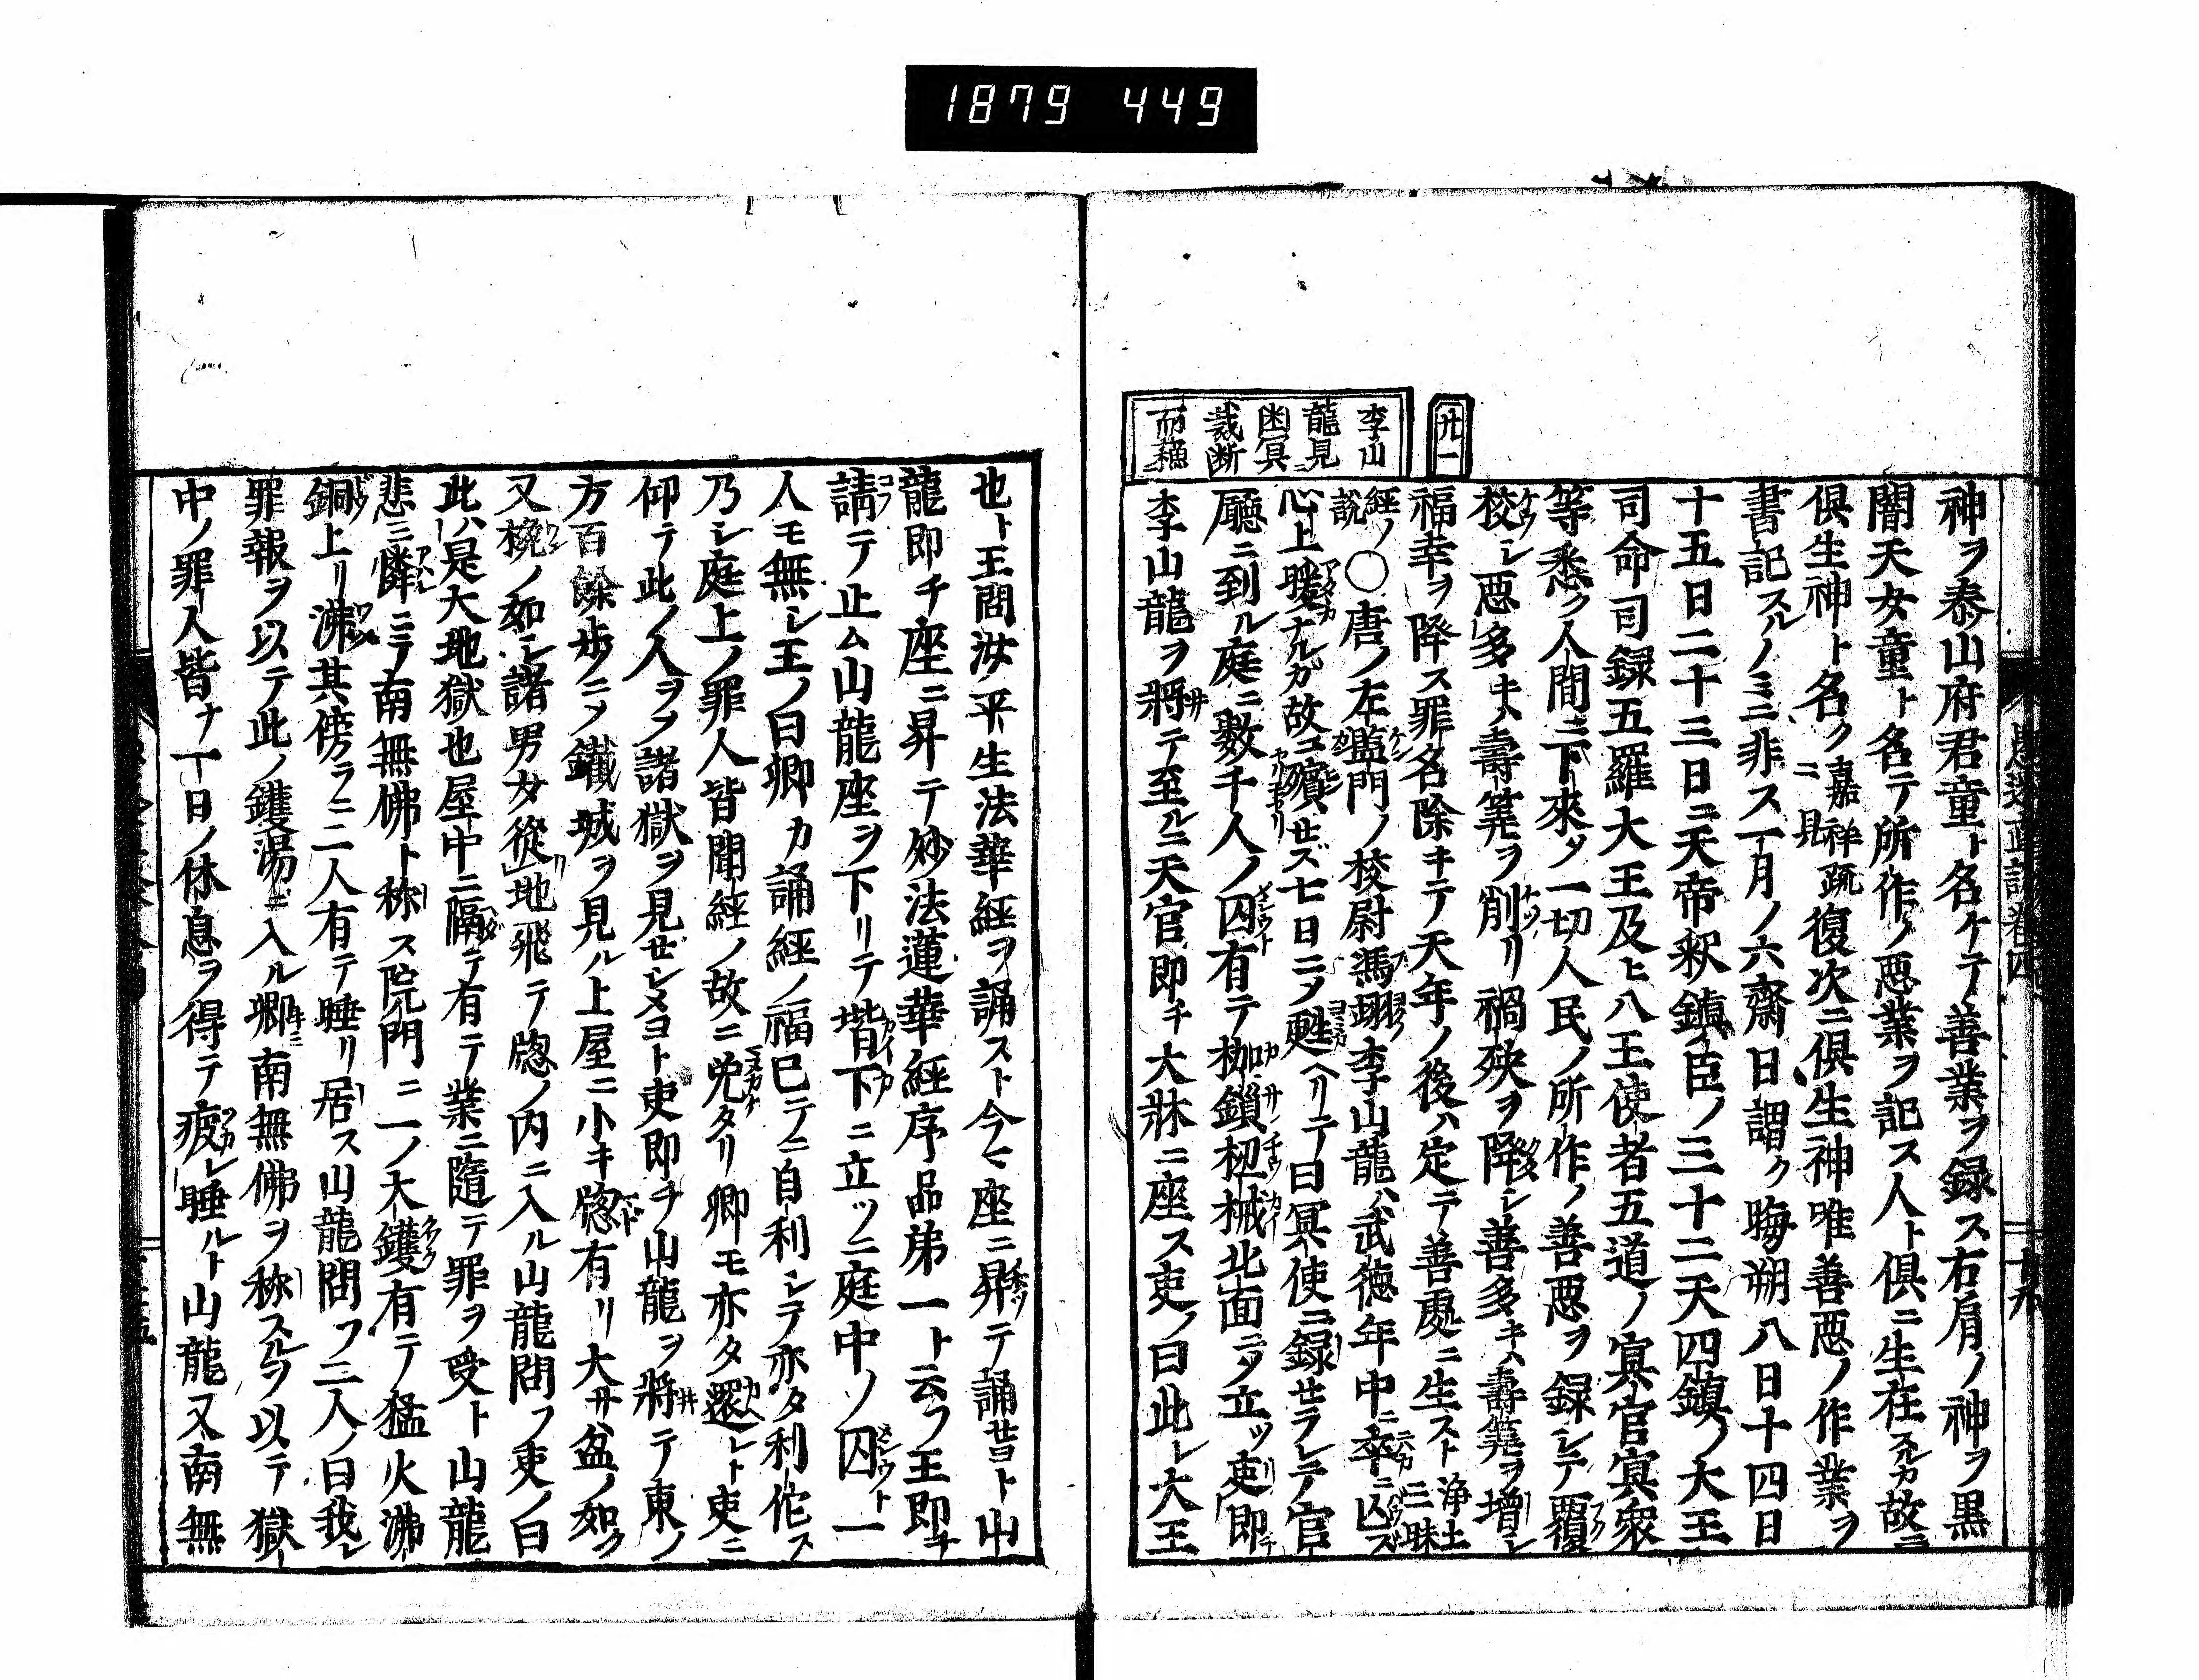 1879 449
神ヲ泰山府君童ト名ケテ善業ヲ録ス右肩ノ神ヲ黒
闇天女童ト名テ所作ノ悪業ヲ記ス人ト倶ニ生在スルカ故ニ
倶生神ト名ク嘉祥疏ニ見復次ニ倶生神唯善悪ノ作業ヲ
書記スルノミニ非ス一月ノ六齋日謂ク晦朔八日十四日
十五日二十三日ニ天帝釈鎮臣ノ三十二天四鎮ノ大王
司命司録五羅大王及ヒ八王使者五道ノ冥官冥衆
等悉ク人間ニ下來タ一切人民ノ所作ノ善悪ヲ録シテ覆
校シ悪多キハ壽筭ヲ削リ禍殃ヲ降シ善多キハ壽筭ヲ増シ
福幸ヲ降ス罪名除キテ天年ノ後ハ定テ善處ニ生スト浄土三昧
経ノ説〇唐ノ左監門ノ校尉馮翊ノ李山龍ハ武徳年中ニ卒ニ亡ズ
心上暖ナルガ故ニ殯セズ七日ニメ甦ヘリテ曰冥使ニ録セラレテ官
廳ニ到ル庭ニ數千人ノ囚有テ枷鎖杻械北面ニメ立ツ吏即チ
李山龍ヲ將テ至ルニ天官即チ大牀ニ座ス吏ノ曰此レ大王
廿一
李山
龍見
困冥
裁断
而蘓
愚迷正記卷四
十九
也ト王問汝平生法華經ヲ誦スト今マ座ニ昇テ誦セヨト山
龍即チ座ニ昇テ妙法蓮華經序品第一ト云フ王即チ
請テ止ム山龍座ヲ下リテ堦下ニ立ツニ庭中ノ囚一
人モ無シ王ノ曰卿カ誦經ノ福已テニ自利シテ亦タ利佗ス
乃シ庭上ノ罪人皆聞經ノ故ニ免タリ卿モ亦タ還レト吏ニ
仰テ此ノ人ヲヲ諸獄ヲ見セシメヨト吏即チ山龍ヲ將テ東ノ
方百餘歩ニヲ鐵城ヲ見ル上屋ニ小キ窓有リ大サ盆ノ如ク
又椀ノ如シ諸男女從地飛テ窓ノ内ニ入ル山龍問フ吏ノ曰
此ハ是大地獄也屋中ニ隔テ有テ業ニ隨テ罪ヲ受ト山龍
悲ミ憐ニテ南無佛ト称ス院門ニ一ノ大鑊有テ猛火沸
銅上リ沸其傍ラニ二人有テ睡リ居ス山龍問フ二人ノ曰我レ
罪報ヲ以テ此ノ鑊湯ニ入ル卿南無佛ヲ称スルヲ以テ獄
中ノ罪人皆ナ一日ノ休息ヲ得テ疲レ睡ルト山龍又南無